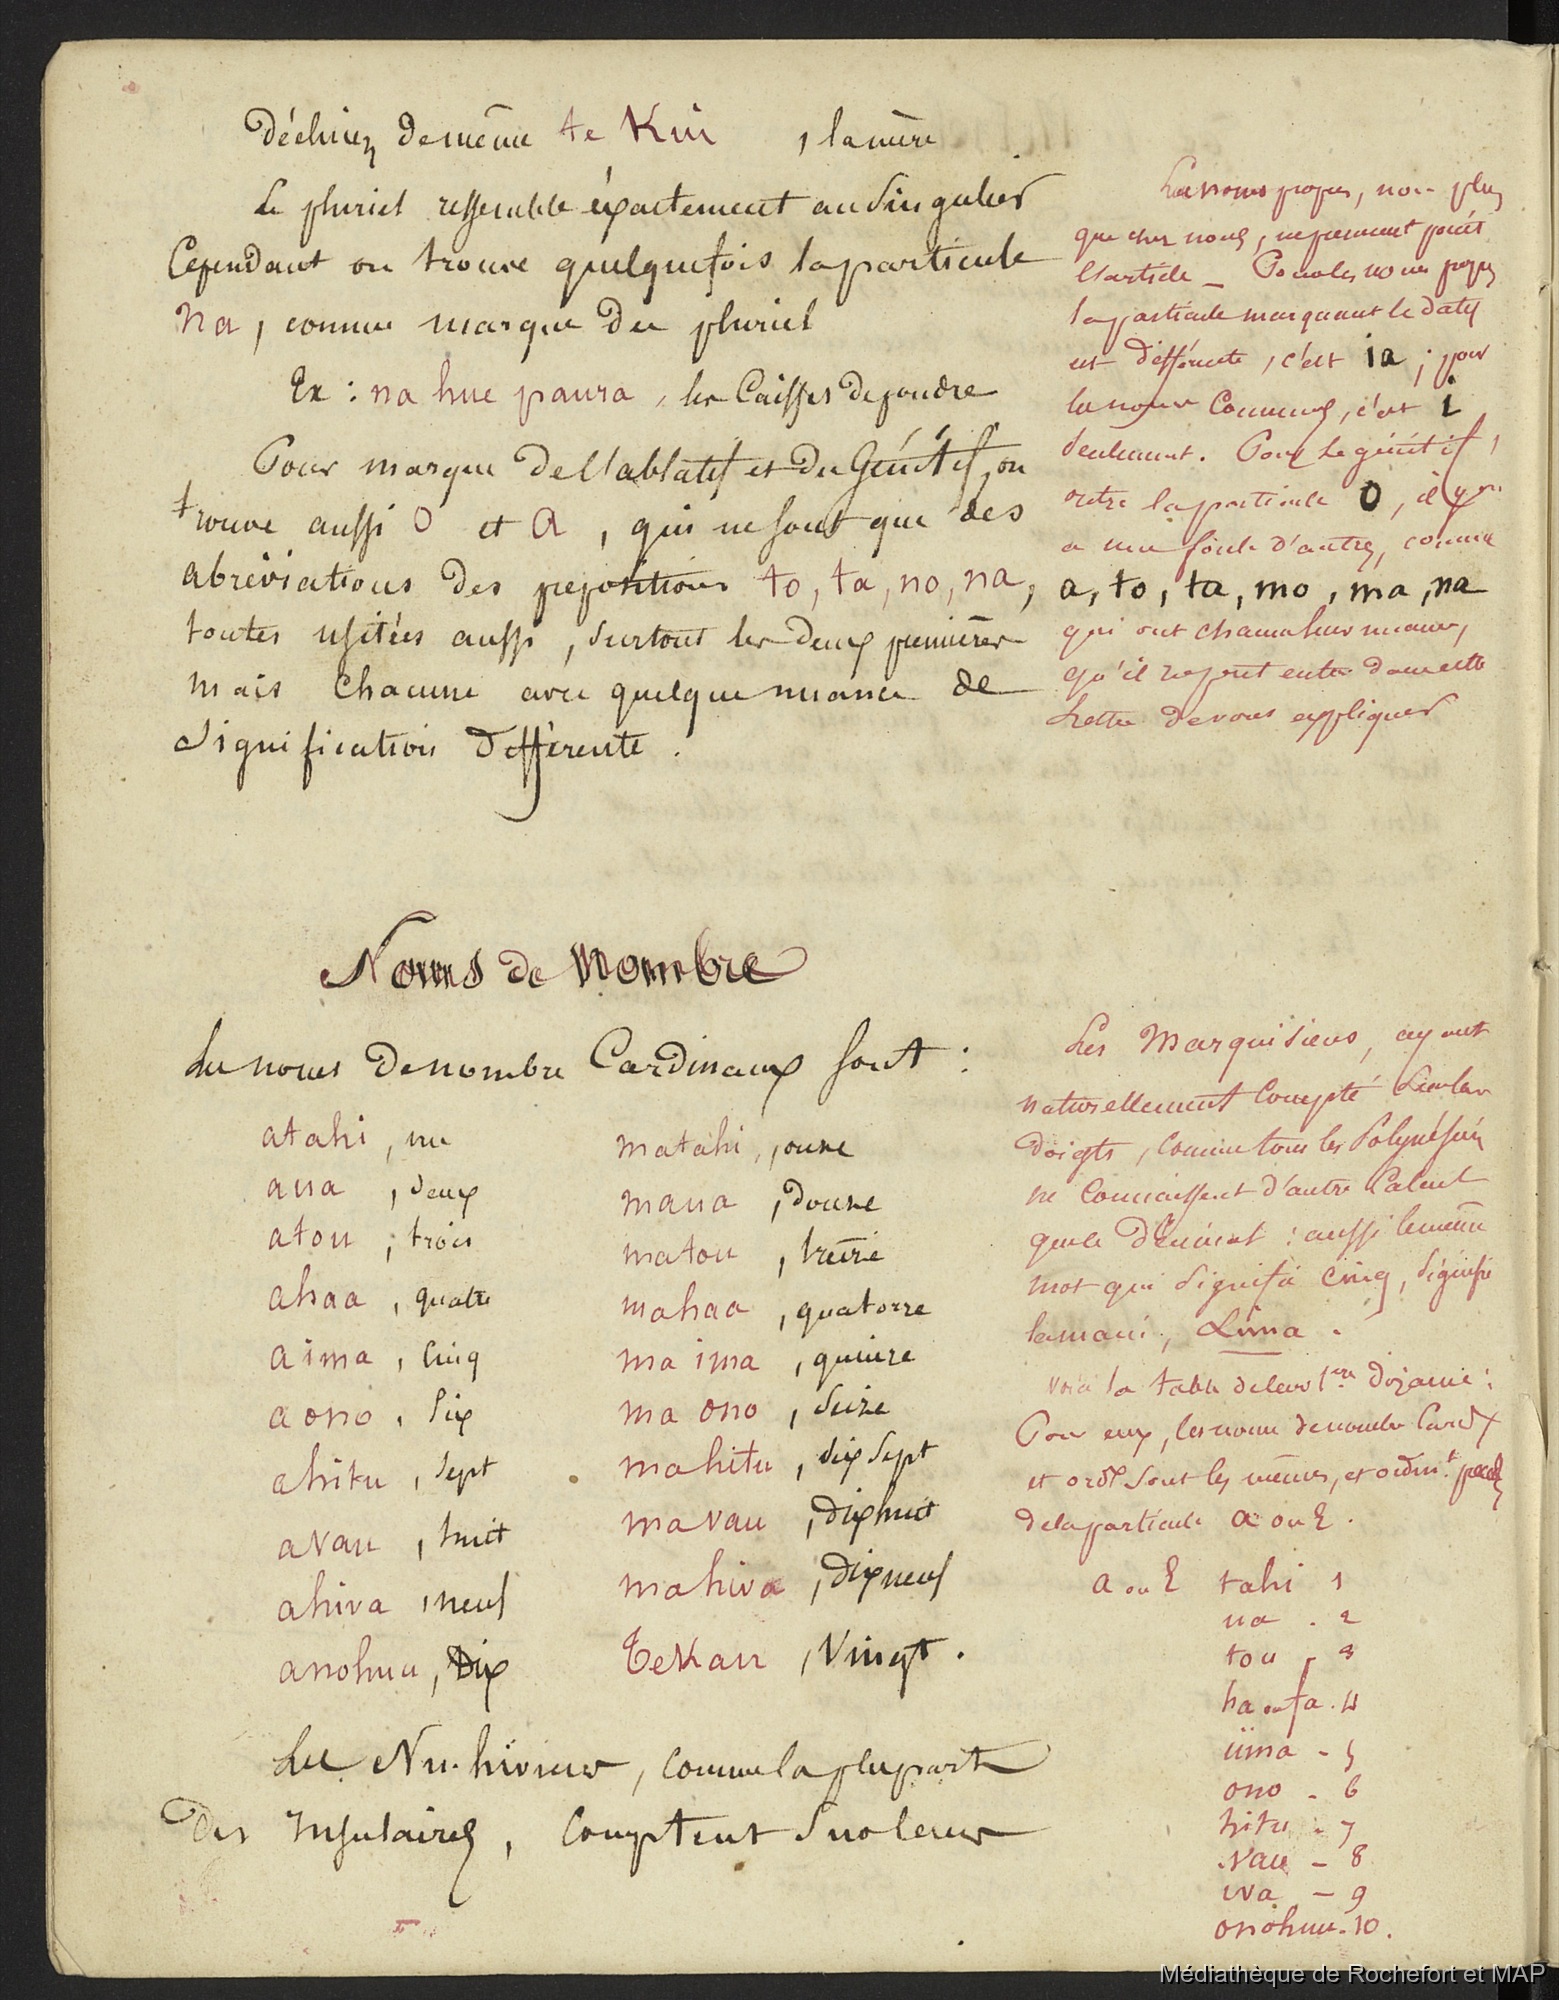 Déclinez de même te Kui , la mère
Le pluriel ressemble éxactement au Singulier
Cependant on trouve quelquefois la particule
na , comme marque du pluriel
Ex : na hue paura , les Caisses de poudre
Pour marque de l'ablatif et du Génitif, on
trouve aussi O et A , qui ne sont que des
abréviations des prépositions to, ta, no, na,
toutes usitées aussi , surtout les deux premières
mais Chacune avec quelque nuance de
Signification différente .
Les noms propres, non plus
que chez nous, ne prennent point
l'article _ Pour les noms propres
la particule marquant le datif
est différente , c'est ia ; pour
les noms Communs, c'est i
seulement. Pour le génitif ,
outre la particule O , il y en
a une foule d'autres, comme
a, to, ta, mo, ma, na
qui ont chacun leur nuance,
qu'il
lettre de vous expliquer
Noms de Nombre
Les noms de nombre Cardinaux sont :
atahi , un
aua , deux
atou , trois
ahaa , quatre
aima , Cinq
aono , Six
ahitu , Sept
avau , huit
ahiva , neuf
anohuu , Dix
matahi , onze
maua , douze
matou , treize
mahaa , quatorze
ma ima , quinze
ma ono , Seize
mahitu , dix Sept
mavau , Dix huit
mahiva , Dix neuf
Tekau , Vingt .
Les Nu-hiviens , comme la plupart
des Insulaires , Comptent Sur leurs
Les Marquisiens, ayant
naturellement Compté Sur leurs
doigts , comme tous les Polynésiens
ne Connaissent d'autre Calcul
que le Décimal : aussi le même
mot qui Signifie Cinq , Signifie
la main , Lima .
Voici la table de leur 1ère Dizaine :
Pour eux, les noms de nombre Cardx
et ordx sont les mêmes, et ordint précédés
de la particule a ou E .
a ou E tahi 1
ua . 2
tou - 3
ha ou fa . 4
iima - 5
ono - 6
hitu - 7
vau - 8
iva - 9
onohuu - 10 .
Médiathèque de Rochefort et MAP